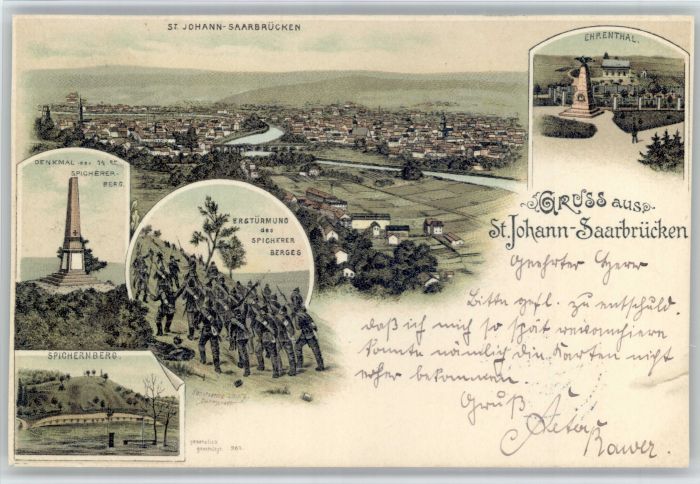 ST. JOHANN-SAARBRÜCKEN
EHRENTHAL.
DENKMAL
SPICHERER-
BERG.
ERSTÜRMUNG
des
SPICHERER
BERGES
GRUSS aus
St. Johann-Saarbrücken
Geehrter Herr
Bitte gefl. zu entschuld.
daß ich mich so spät revanchiere
konnte nämlich die Karten nicht
eher bekommen.
Gruß
SPICHERNBERG.
gesetzlich